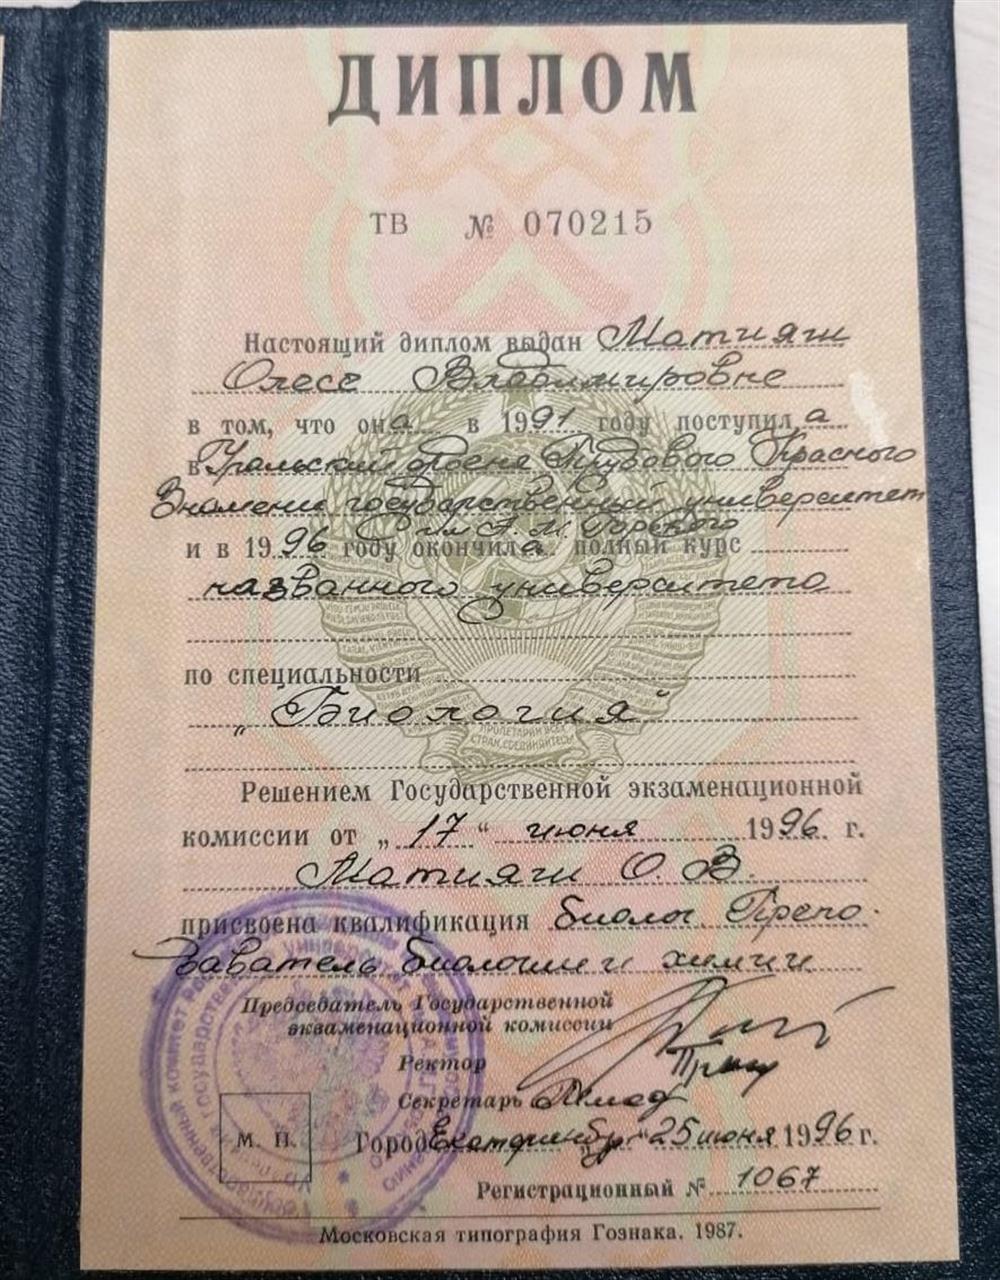 ДИПЛОМ
ТВ № 070215
Настоящий диплом выдан Матияш
Олесе Владимировне
в том, что она в 1991 году поступила
в Уральский ордена Трудового Красного
Знамени государственный университет
им А. М. Горького
и в 1996 году окончила полный курс
названного университета
по специальности
„Биология"
Решением Государственной экзаменационной
комиссии от „17" июня 1996 г.
Матияш О. В.
присвоена квалификация биолог. Препо-
даватель биологии и химии
Председатель Государственной
экзаменационной комиссии
Ректор
Секретарь
М. П.
Город Екатеринбург 25 июня 1996 г.
Регистрационный № 1067
Московская типография Гознака. 1987.